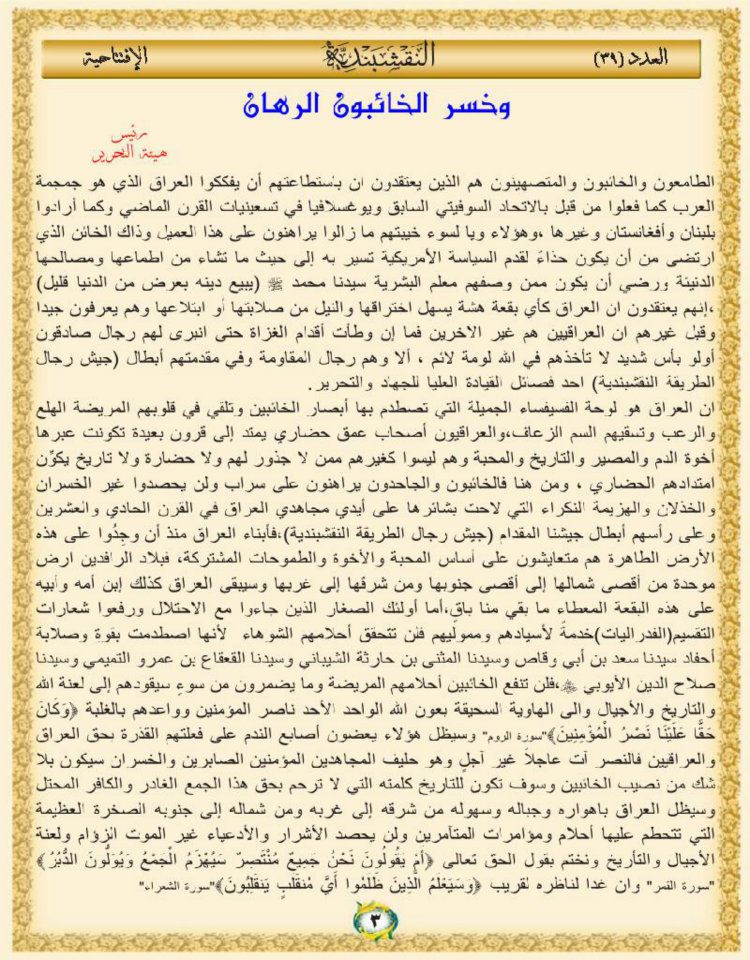 العدد (٣٩)
النَقْشَبَنْدِيَّة
الإفتتاحية
وخسر الخائبون الرهان
رئيس
هيئة التحرير
الطامعون والخائبون والمتصهينون هم الذين يعتقدون ان باستطاعتهم أن يفككوا العراق الذي هو جمجمة
العرب كما فعلوا من قبل بالاتحاد السوفيتي السابق ويوغسلافيا في تسعينيات القرن الماضي وكما أرادوا
بلبنان وأفغانستان وغيرها ،وهؤلاء ويا لسوء خيبتهم ما زالوا يراهنون على هذا العميل وذاك الخائن الذي
ارتضى من أن يكون حذاءً لقدم السياسة الأمريكية تسير به إلى حيث ما تشاء من اطماعها ومصالحها
الدنيئة ورضي أن يكون ممن وصفهم معلم البشرية سيدنا محمد ﷺ (يبيع دينه بعرض من الدنيا قليل)
،إنهم يعتقدون ان العراق كأي بقعة هشة يسهل اختراقها والنيل من صلابتها أو ابتلاعها وهم يعرفون جيدا
وقبل غيرهم ان العراقيين هم غير الاخرين فما إن وطأت أقدام الغزاة حتى انبرى لهم رجال صادقون
أولو بأس شديد لا تأخذهم في الله لومة لائم ، ألا وهم رجال المقاومة وفي مقدمتهم أبطال (جيش رجال
الطريقة النقشبندية) احد فصائل القيادة العليا للجهاد والتحرير.
ان العراق هو لوحة الفسيفساء الجميلة التي تصطدم بها أبصار الخائبين وتلقي في قلوبهم المريضة الهلع
والرعب وتسقيهم السم الزعاف،والعراقيون أصحاب عمق حضاري يمتد إلى قرون بعيدة تكونت عبرها
أخوة الدم والمصير والتاريخ والمحبة وهم ليسوا كغيرهم ممن لا جذور لهم ولا حضارة ولا تاريخ يكوِّن
امتدادهم الحضاري ، ومن هنا فالخائبون والجاحدون يراهنون على سراب ولن يحصدوا غير الخسران
والخذلان والهزيمة النكراء التي لاحت بشائرها على أيدي مجاهدي العراق في القرن الحادي والعشرين
وعلى رأسهم أبطال جيشنا المقدام (جيش رجال الطريقة النقشبندية)،فأبناء العراق منذ أن وجِدُوا على هذه
الأرض الطاهرة هم متعايشون على أساس المحبة والأخوة والطموحات المشتركة، فبلاد الرافدين ارض
موحدة من أقصى شمالها إلى أقصى جنوبها ومن شرقها إلى غربها وسيبقى العراق كذلك إبن أمه وأبيه
على هذه البقعة المعطاء ما بقي منا باقٍ،أما أولئك الصغار الذين جاءوا مع الاحتلال ورفعوا شعارات
التقسيم(الفدراليات)خدمةً لأسيادهم ومموليهم فلن تتحقق أحلامهم الشوهاء لأنها اصطدمت بقوة وصلابة
أحفاد سيدنا سعد بن أبي وقاص وسيدنا المثنى بن حارثة الشيباني وسيدنا القعقاع بن عمرو التميمي وسيدنا
صلاح الدين الأيوبي ،فلن تنفع الخائبين أحلامهم المريضة وما يضمرون من سوءٍ سيقودهم إلى لعنة الله
والتاريخ والأجيال والى الهاوية السحيقة بعون الله الواحد الأحد ناصر المؤمنين وواعدهم بالغلبة ﴿وَكَانَ
حَقًّا عَلَيْنَا نَصْرُ الْمُؤْمِنِينَ﴾"سورة الروم" وسيظل هؤلاء يعضون أصابع الندم على فعلتهم القذرة بحق العراق
والعراقيين فالنصر آت عاجلاً غير آجلٍ وهو حليف المجاهدين المؤمنين الصابرين والخسران سيكون بلا
شك من نصيب الخائبين وسوف تكون للتاريخ كلمته التي لا ترحم بحق هذا الجمع الغادر والكافر المحتل
وسيظل العراق باهواره وجباله وسهوله من شرقه إلى غربه ومن شماله إلى جنوبه الصخرة العظيمة
التي تتحطم عليها أحلام ومؤامرات المتآمرين ولن يحصد الأشرار والأدعياء غير الموت الزؤام ولعنة
الأجيال والتأريخ ونختم بقول الحق تعالى ﴿أَمْ يَقُولُونَ نَحْنُ جَمِيعٌ مُنْتَصِرٌ سَيُهْزَمُ الْجَمْعُ وَيُوَلُّونَ الدُّبُرَ﴾
"سورة القمر" وان غدا لناظره لقريب ﴿وَسَيَعْلَمُ الَّذِينَ ظَلَمُوا أَيَّ مُنقَلَبٍ يَنقَلِبُونَ﴾"سورة الشعراء"
٣